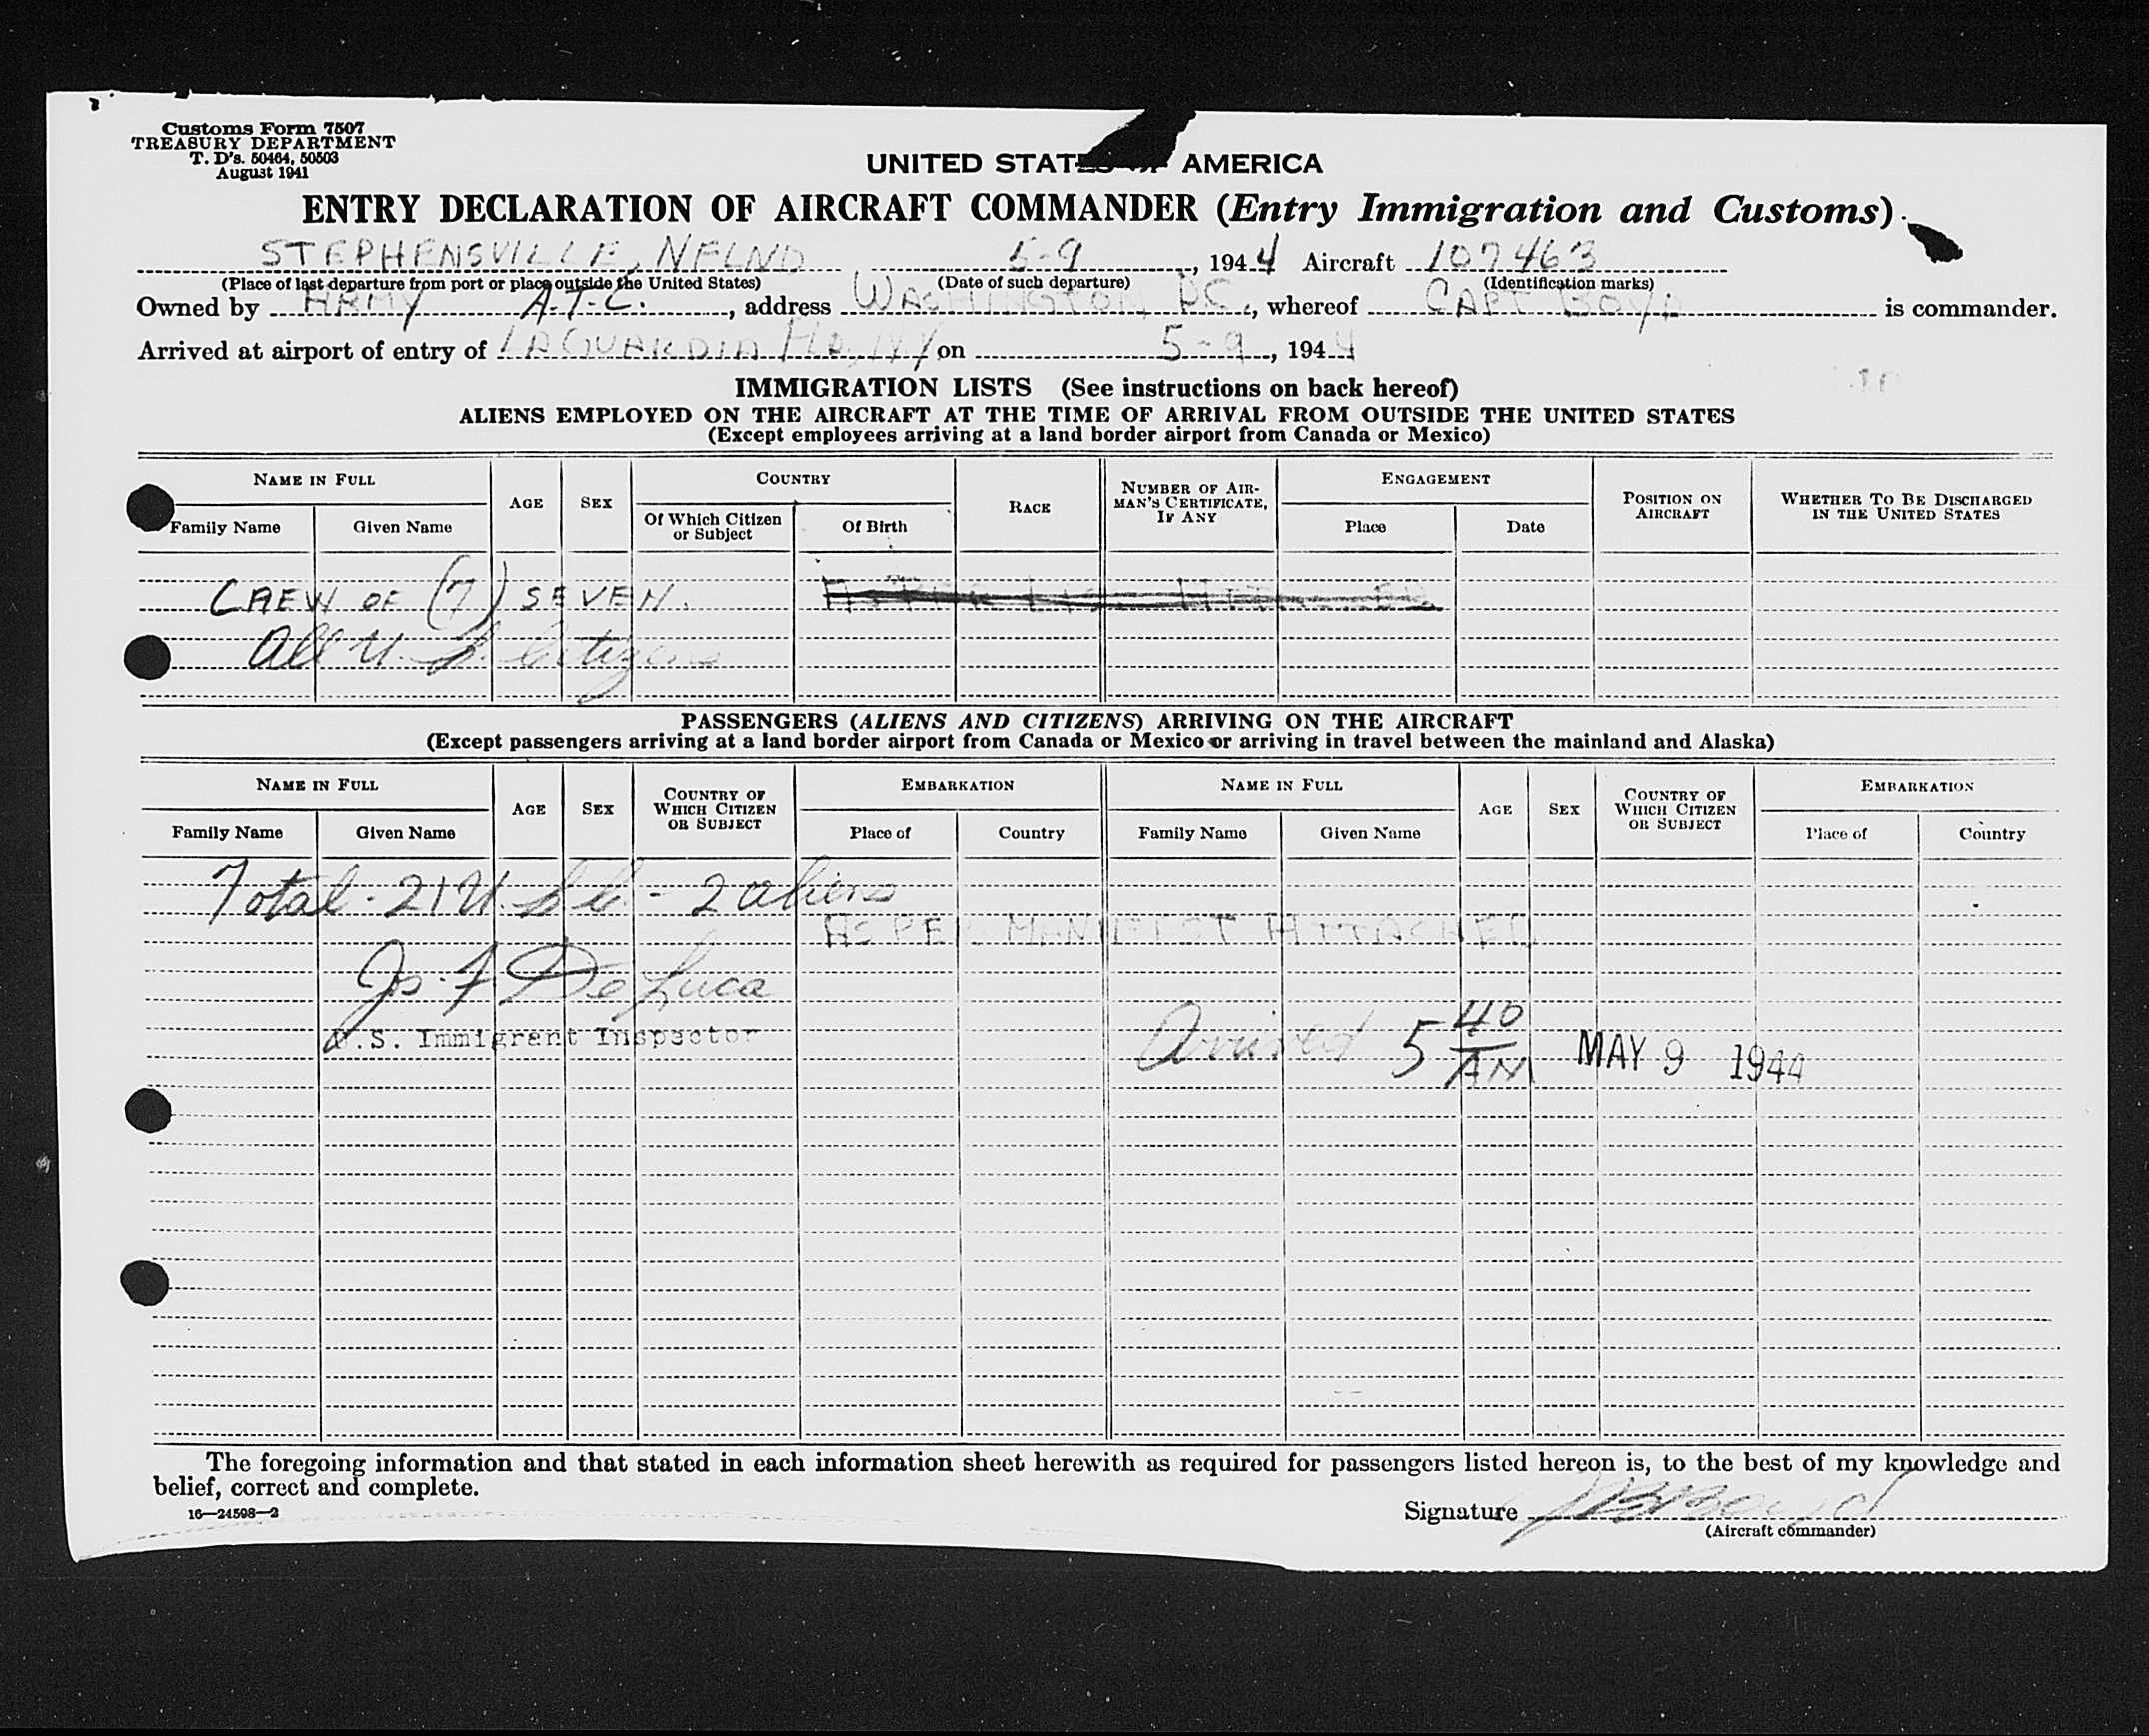 Customs Form 7507
TREASURY DEPARTMENT
T. D's. 50464, 50503
August 1941
UNITED STATES OF AMERICA
ENTRY DECLARATION OF AIRCRAFT COMMANDER (Entry Immigration and Customs)
STEPHENSVILLE, NFLND 5-9, 1944 Aircraft 107463
(Place of last departure from port or place outside the United States) (Date of such departure) (Identification marks)
Owned by ARMY A.T.C., address WASHINGTON, D.C., whereof CAPT BOYD is commander.
Arrived at airport of entry of LAGUARDIA FLD, N.Y on 5-9, 1944
IMMIGRATION LISTS (See instructions on back hereof)
ALIENS EMPLOYED ON THE AIRCRAFT AT THE TIME OF ARRIVAL FROM OUTSIDE THE UNITED STATES
(Except employees arriving at a land border airport from Canada or Mexico)
NAME IN FULL AGE SEX COUNTRY RACE NUMBER OF AIRMAN'S CERTIFICATE, IF ANY ENGAGEMENT POSITION ON AIRCRAFT WHETHER TO BE DISCHARGED IN THE UNITED STATES
Family Name Given Name Of Which Citizen or Subject Of Birth Place Date
CREW OF (7) SEVEN.
All U.S. Citizens
PASSENGERS (ALIENS AND CITIZENS) ARRIVING ON THE AIRCRAFT
(Except passengers arriving at a land border airport from Canada or Mexico or arriving in travel between the mainland and Alaska)
NAME IN FULL AGE SEX COUNTRY OF WHICH CITIZEN OR SUBJECT EMBARKATION NAME IN FULL AGE SEX COUNTRY OF WHICH CITIZEN OR SUBJECT EMBARKATION
Family Name Given Name Place of Country Family Name Given Name Place of Country
Total - 21 U.S.C. - 2 aliens
AS PER MANIFEST ATTACHED
Js. F. De Luca
U.S. Immigrant Inspector
Arrived 5 40/AM MAY 9 1944
The foregoing information and that stated in each information sheet herewith as required for passengers listed hereon is, to the best of my knowledge and
belief, correct and complete.
16—24598—2
Signature
(Aircraft commander)